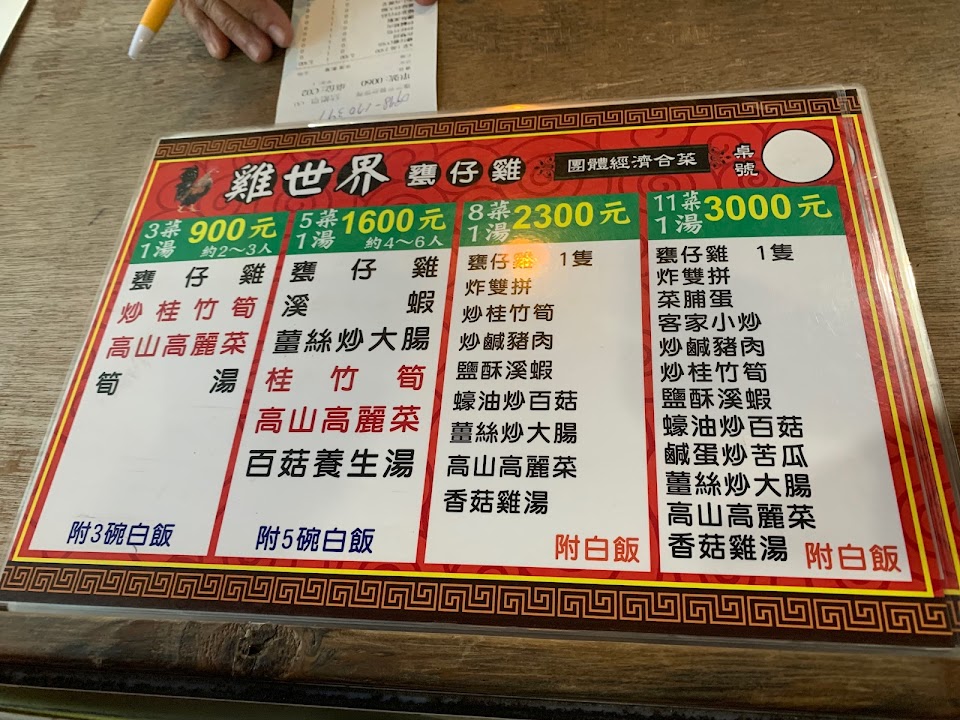 雞世界 甕仔雞 團體經濟合菜 桌號
3菜1湯 900元 約2～3人
甕仔雞
炒桂竹筍
高山高麗菜
筍湯
附3碗白飯
5菜1湯 1600元 約4～6人
甕仔雞
溪蝦
薑絲炒大腸
桂竹筍
高山高麗菜
百菇養生湯
附5碗白飯
8菜1湯 2300元
甕仔雞 1隻
炸雙拼
炒桂竹筍
炒鹹豬肉
鹽酥溪蝦
蠔油炒百菇
薑絲炒大腸
高山高麗菜
香菇雞湯
附白飯
11菜1湯 3000元
甕仔雞 1隻
炸雙拼
菜脯蛋
客家小炒
炒鹹豬肉
炒桂竹筍
鹽酥溪蝦
蠔油炒百菇
鹹蛋炒苦瓜
薑絲炒大腸
高山高麗菜
香菇雞湯
附白飯